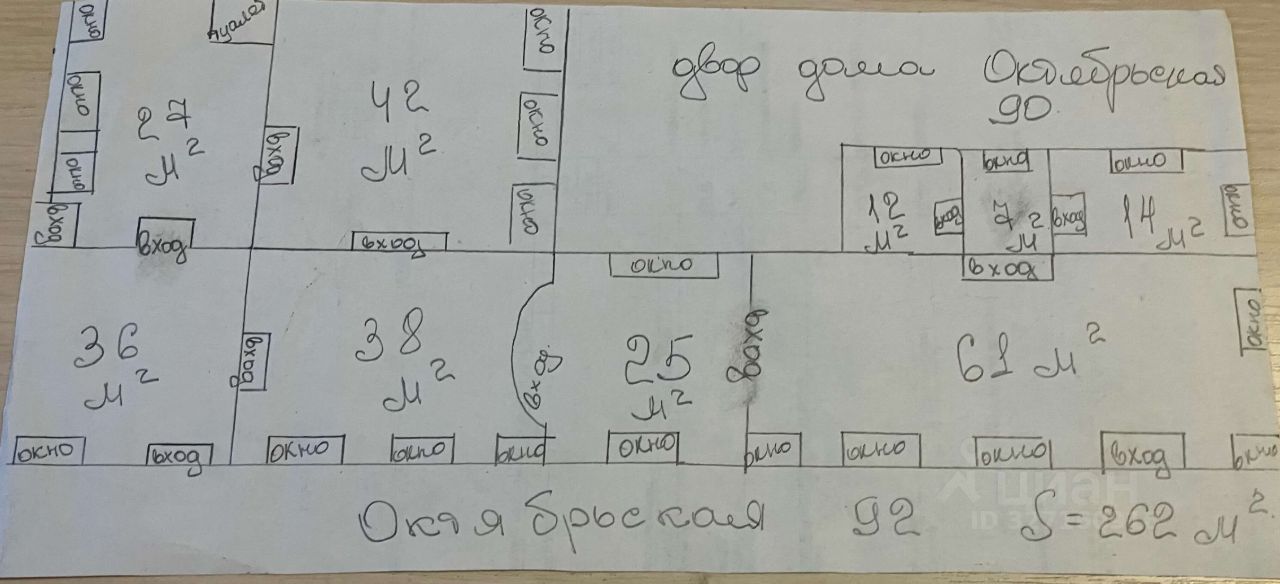 окно
туалет
окно
двор дома Октябрьская
90
окно
27
м²
42
м²
окно
вход
окно
вход
вход
окно
вход
окно
окно
окно
12
м²
вход
7
м²
вход
14
м²
окно
вход
окно
вход
36
м²
вход
38
м²
вход
25
м²
вход
61 м²
окно
окно
вход
окно
окно
окно
окно
окно
окно
окно
вход
окно
Октябрьская 92 S = 262 м²
циан